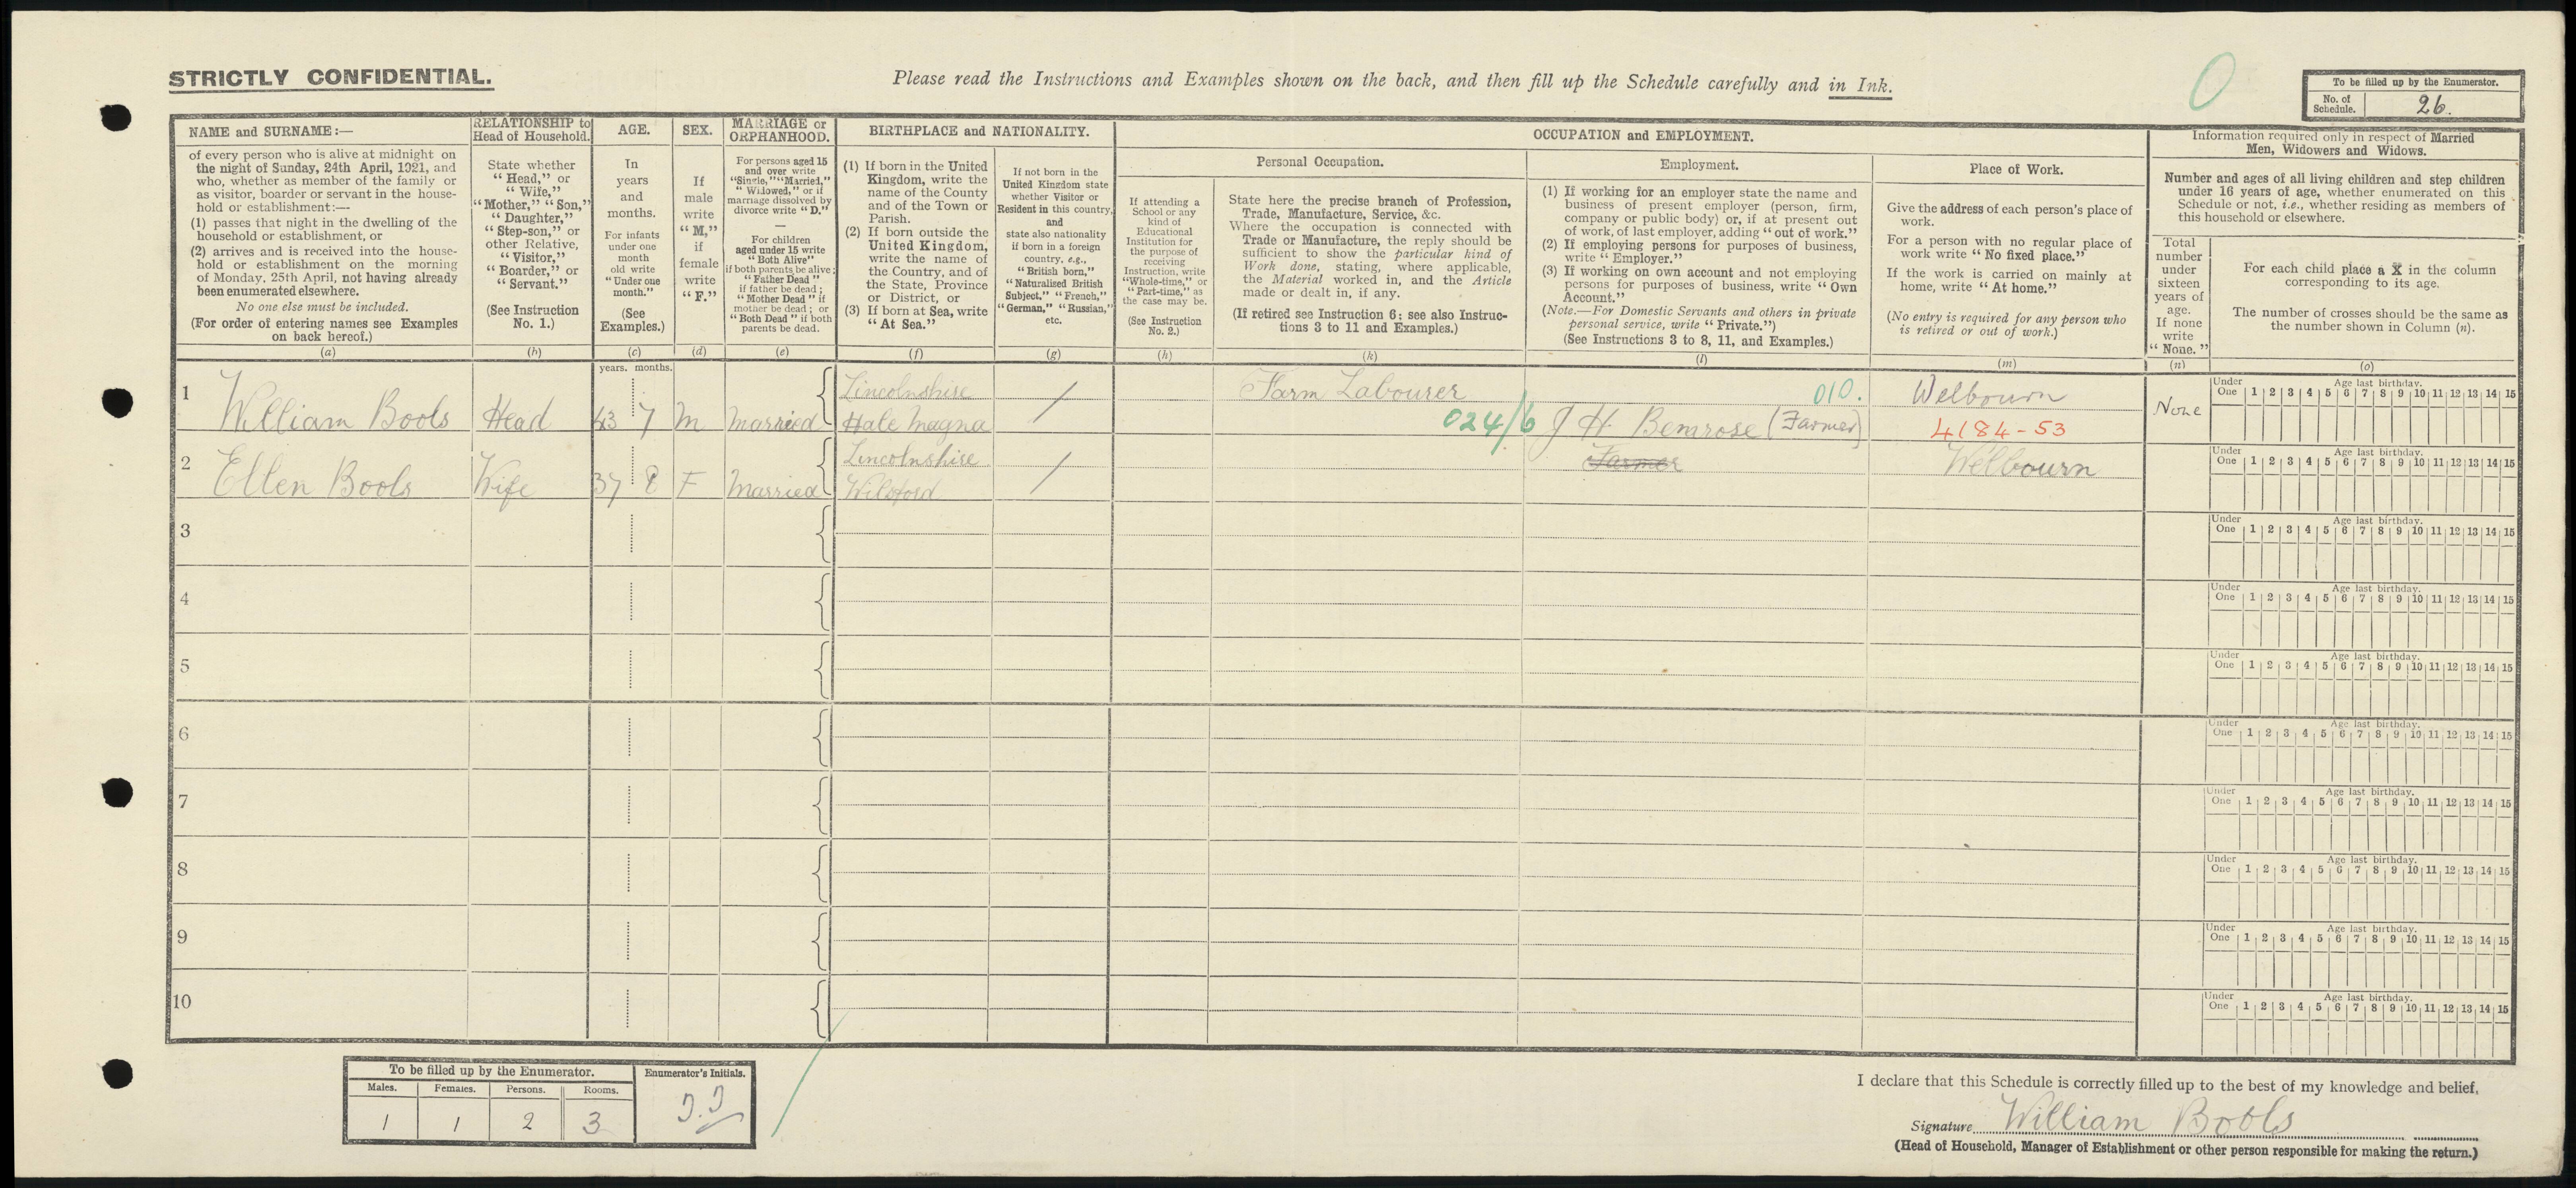 STRICTLY CONFIDENTIAL.
Please read the Instructions and Examples shown on the back, and then fill up the Schedule carefully and in Ink.
0
To be filled up by the Enumerator.
No. of Schedule. 26.
NAME and SURNAME:—
of every person who is alive at midnight on
the night of Sunday, 24th April, 1921, and
who, whether as member of the family or
as visitor, boarder or servant in the house-
hold or establishment:—
(1) passes that night in the dwelling of the
household or establishment, or
(2) arrives and is received into the house-
hold or establishment on the morning
of Monday, 25th April, not having already
been enumerated elsewhere.
No one else must be included.
(For order of entering names see Examples
on back hereof.)
(a)
RELATIONSHIP to
Head of Household.
State whether
"Head," or
"Wife,"
"Mother," "Son,"
"Daughter,"
"Step-son," or
other Relative,
"Visitor,"
"Boarder," or
"Servant."
(See Instruction
No. 1.)
(b)
AGE.
In
years
and
months.
For infants
under one
month
old write
"Under one
month."
(See
Examples.)
(c)
SEX.
If
male
write
"M,"
if
female
write
"F."
(d)
MARRIAGE or
ORPHANHOOD.
For persons aged 15
and over write
"Single," "Married,"
"Widowed," or if
marriage dissolved by
divorce write "D."
—
For children
aged under 15 write
"Both Alive"
if both parents be alive;
"Father Dead"
if father be dead;
"Mother Dead" if
mother be dead; or
"Both Dead" if both
parents be dead.
(e)
BIRTHPLACE and NATIONALITY.
(1) If born in the United
Kingdom, write the
name of the County
and of the Town or
Parish.
(2) If born outside the
United Kingdom,
write the name of
the Country, and of
the State, Province
or District, or
(3) If born at Sea, write
"At Sea."
(f)
If not born in the
United Kingdom state
whether Visitor or
Resident in this country,
and
state also nationality
if born in a foreign
country, e.g.,
"British born,"
"Naturalised British
Subject," "French,"
"German," "Russian,"
etc.
(g)
OCCUPATION and EMPLOYMENT.
Personal Occupation.
If attending a
School or any
kind of
Educational
Institution for
the purpose of
receiving
Instruction, write
"Whole-time," or
"Part-time," as
the case may be.
(See Instruction
No. 2.)
(h)
State here the precise branch of Profession,
Trade, Manufacture, Service, &c.
Where the occupation is connected with
Trade or Manufacture, the reply should be
sufficient to show the particular kind of
Work done, stating, where applicable,
the Material worked in, and the Article
made or dealt in, if any.
(If retired see Instruction 6; see also Instruc-
tions 3 to 11 and Examples.)
(k)
Employment.
(1) If working for an employer state the name and
business of present employer (person, firm,
company or public body) or, if at present out
of work, of last employer, adding "out of work."
(2) If employing persons for purposes of business,
write "Employer."
(3) If working on own account and not employing
persons for purposes of business, write "Own
Account."
(Note.—For Domestic Servants and others in private
personal service, write "Private.")
(See Instructions 3 to 8, 11, and Examples.)
(l)
Place of Work.
Give the address of each person's place of
work.
For a person with no regular place of
work write "No fixed place."
If the work is carried on mainly at
home, write "At home."
(No entry is required for any person who
is retired or out of work.)
(m)
Information required only in respect of Married
Men, Widowers and Widows.
Number and ages of all living children and step children
under 16 years of age, whether enumerated on this
Schedule or not, i.e., whether residing as members of
this household or elsewhere.
Total
number
under
sixteen
years of
age.
If none
write
"None."
(n)
For each child place a X in the column
corresponding to its age.
The number of crosses should be the same as
the number shown in Column (n).
(o)
years. months.
1 William Bools Head 43 7 M Married Lincolnshire Hale Magna / Farm Labourer 024/6 010. J H Bemrose (Farmer) Welbourn 4184-53 None
Under One 1 2 3 4 5 6 7 8 9 10 11 12 13 14 15
Age last birthday.
2 Ellen Bools Wife 37 8 F Married Lincolnshire Wilsford / Farmer Welbourn
Under One 1 2 3 4 5 6 7 8 9 10 11 12 13 14 15
Age last birthday.
3
Under One 1 2 3 4 5 6 7 8 9 10 11 12 13 14 15
Age last birthday.
4
Under One 1 2 3 4 5 6 7 8 9 10 11 12 13 14 15
Age last birthday.
5
Under One 1 2 3 4 5 6 7 8 9 10 11 12 13 14 15
Age last birthday.
6
Under One 1 2 3 4 5 6 7 8 9 10 11 12 13 14 15
Age last birthday.
7
Under One 1 2 3 4 5 6 7 8 9 10 11 12 13 14 15
Age last birthday.
8
Under One 1 2 3 4 5 6 7 8 9 10 11 12 13 14 15
Age last birthday.
9
Under One 1 2 3 4 5 6 7 8 9 10 11 12 13 14 15
Age last birthday.
10
Under One 1 2 3 4 5 6 7 8 9 10 11 12 13 14 15
Age last birthday.
To be filled up by the Enumerator.
Males. Females. Persons. Rooms.
1 1 2 3
Enumerator's Initials.
I declare that this Schedule is correctly filled up to the best of my knowledge and belief.
Signature William Bools
(Head of Household, Manager of Establishment or other person responsible for making the return.)